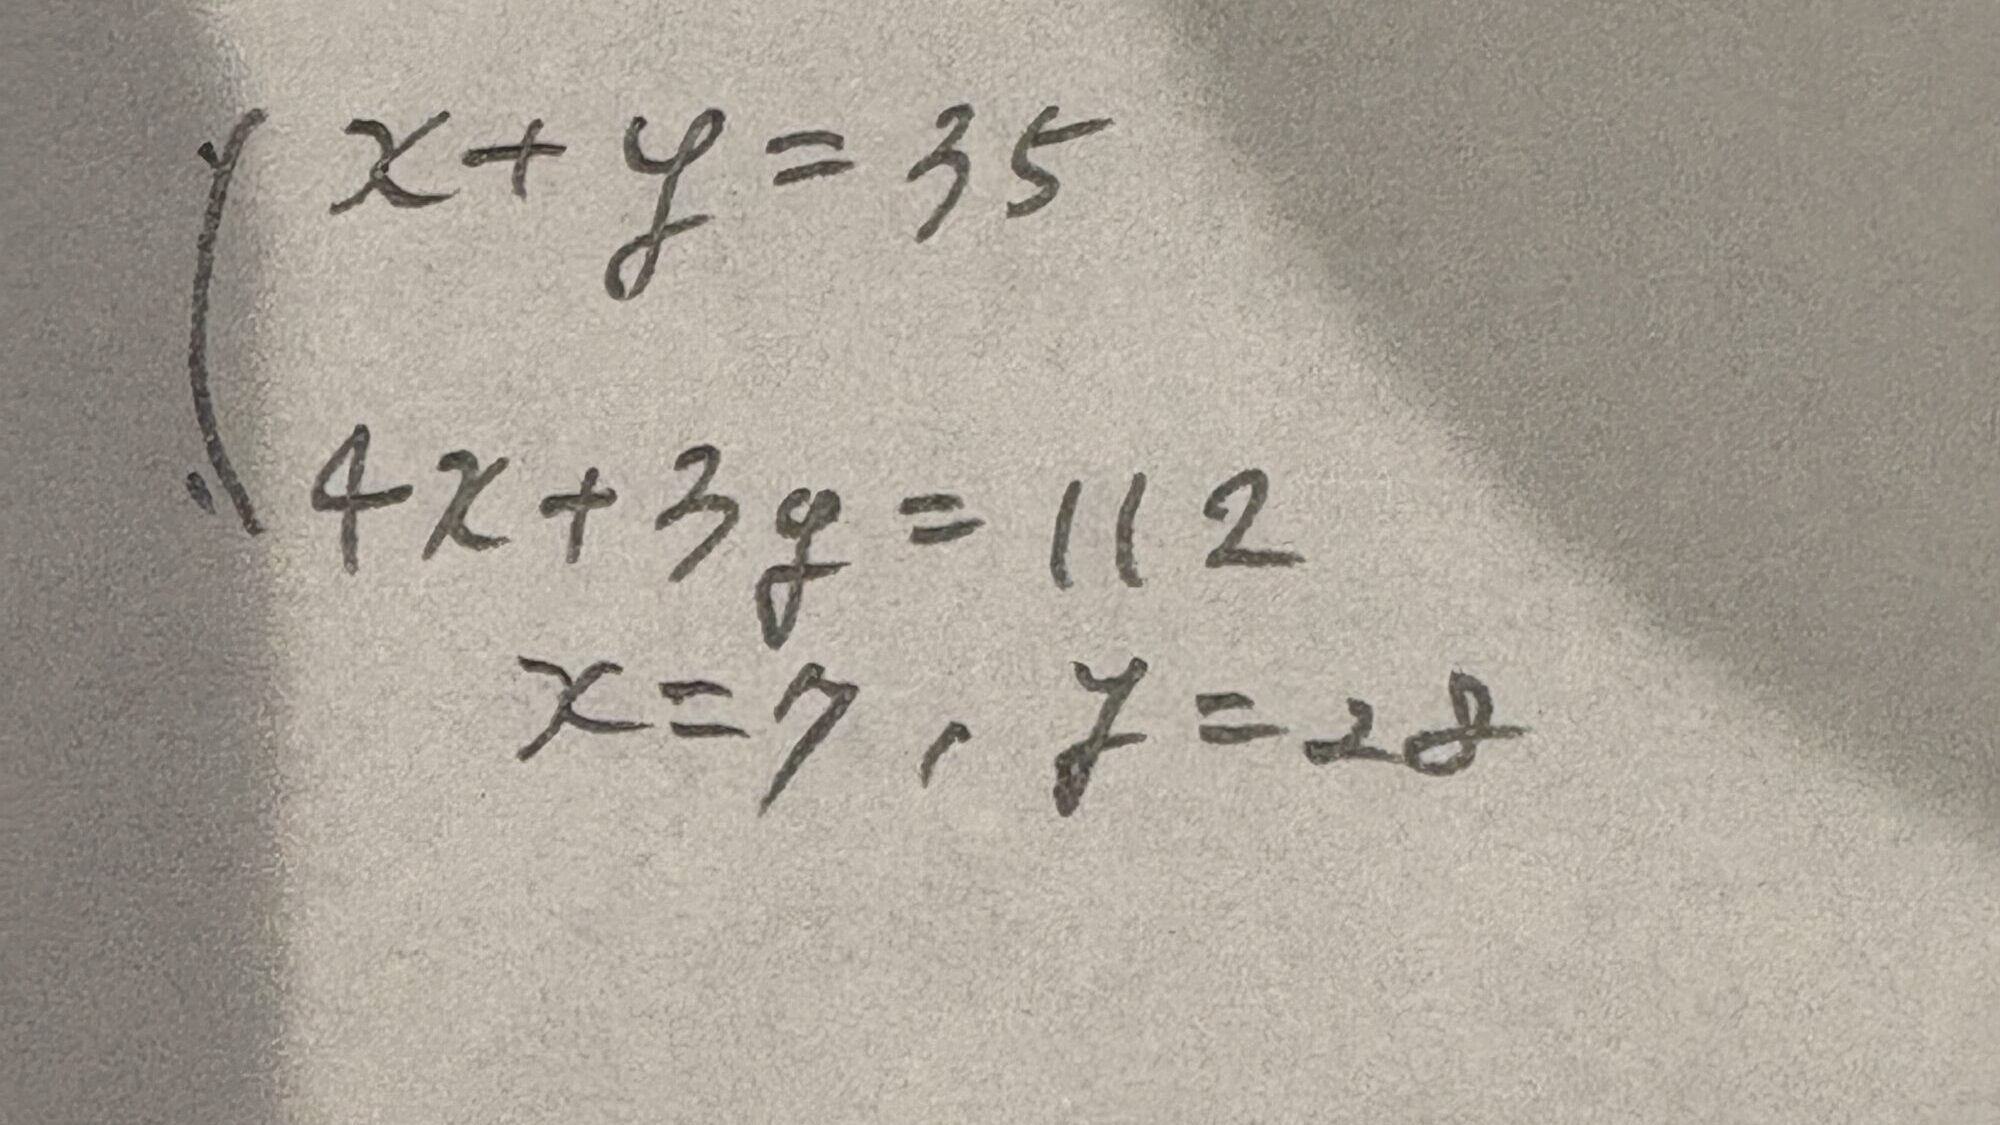 x + y = 35
4x + 3y = 112
x = 7, y = 28